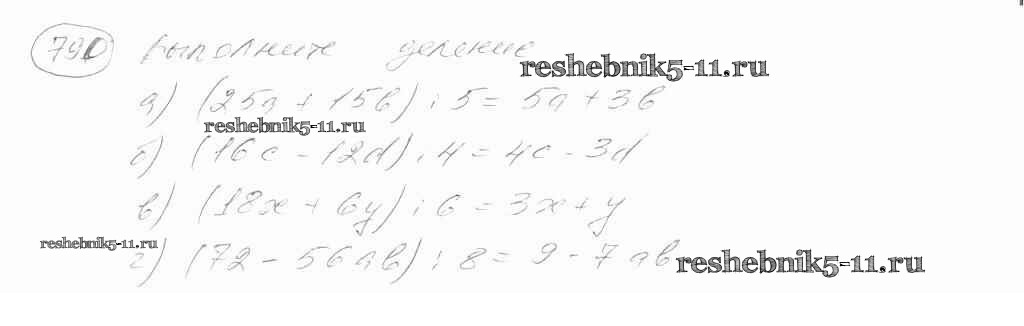 790 Выполните деление
reshebnik5-11.ru
а) (25a + 15b) : 5 = 5a + 3b
reshebnik5-11.ru
б) (16c - 12d) : 4 = 4c - 3d
в) (18x + 6y) : 6 = 3x + y
reshebnik5-11.ru
г) (72 - 56ab) : 8 = 9 - 7ab
reshebnik5-11.ru